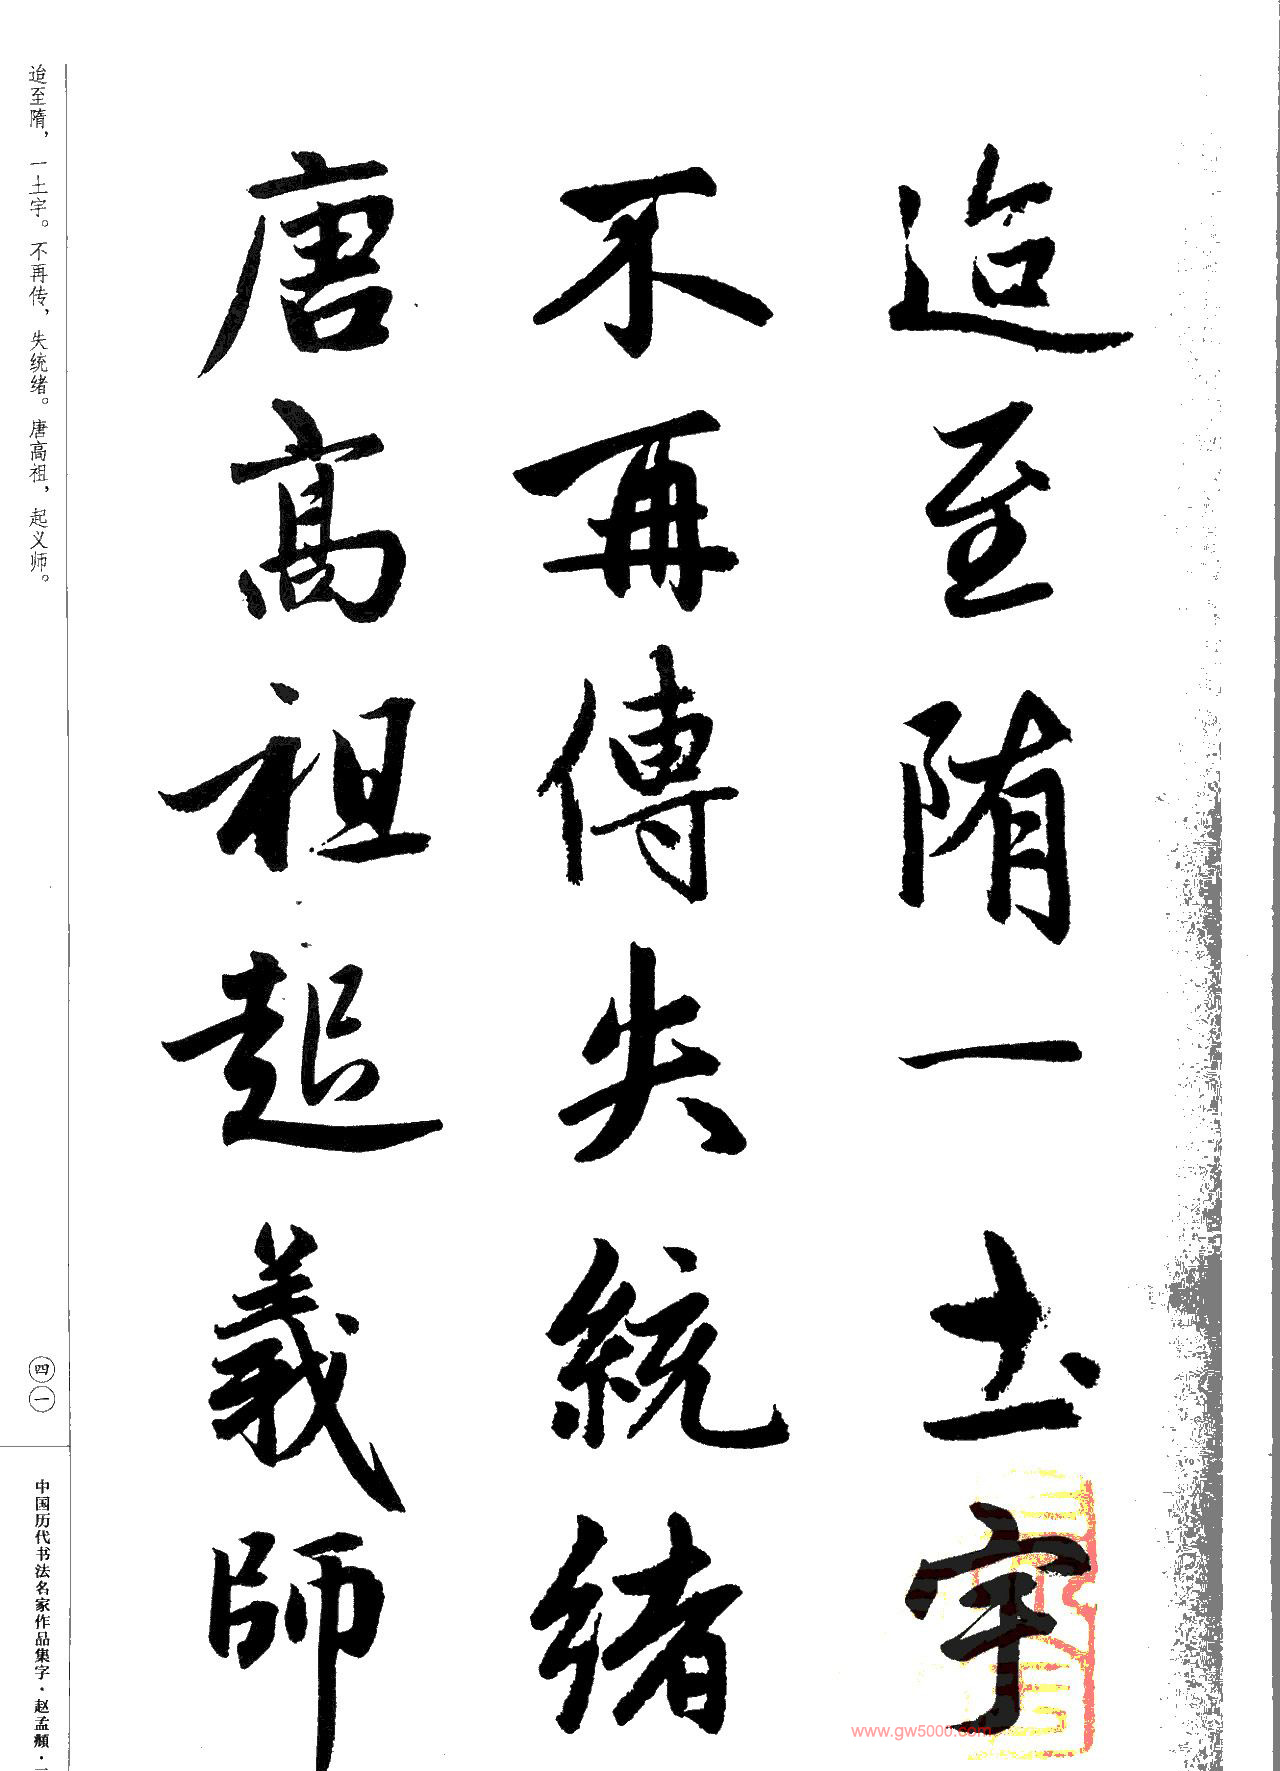 迨至隋一土宇
不再傳失統緒
唐高祖起義師
迨至隋，一土宇。不再传，失统绪。唐高祖，起义师。
四一
中国历代书法名家作品集字·赵孟頫·
www.gw5000.com